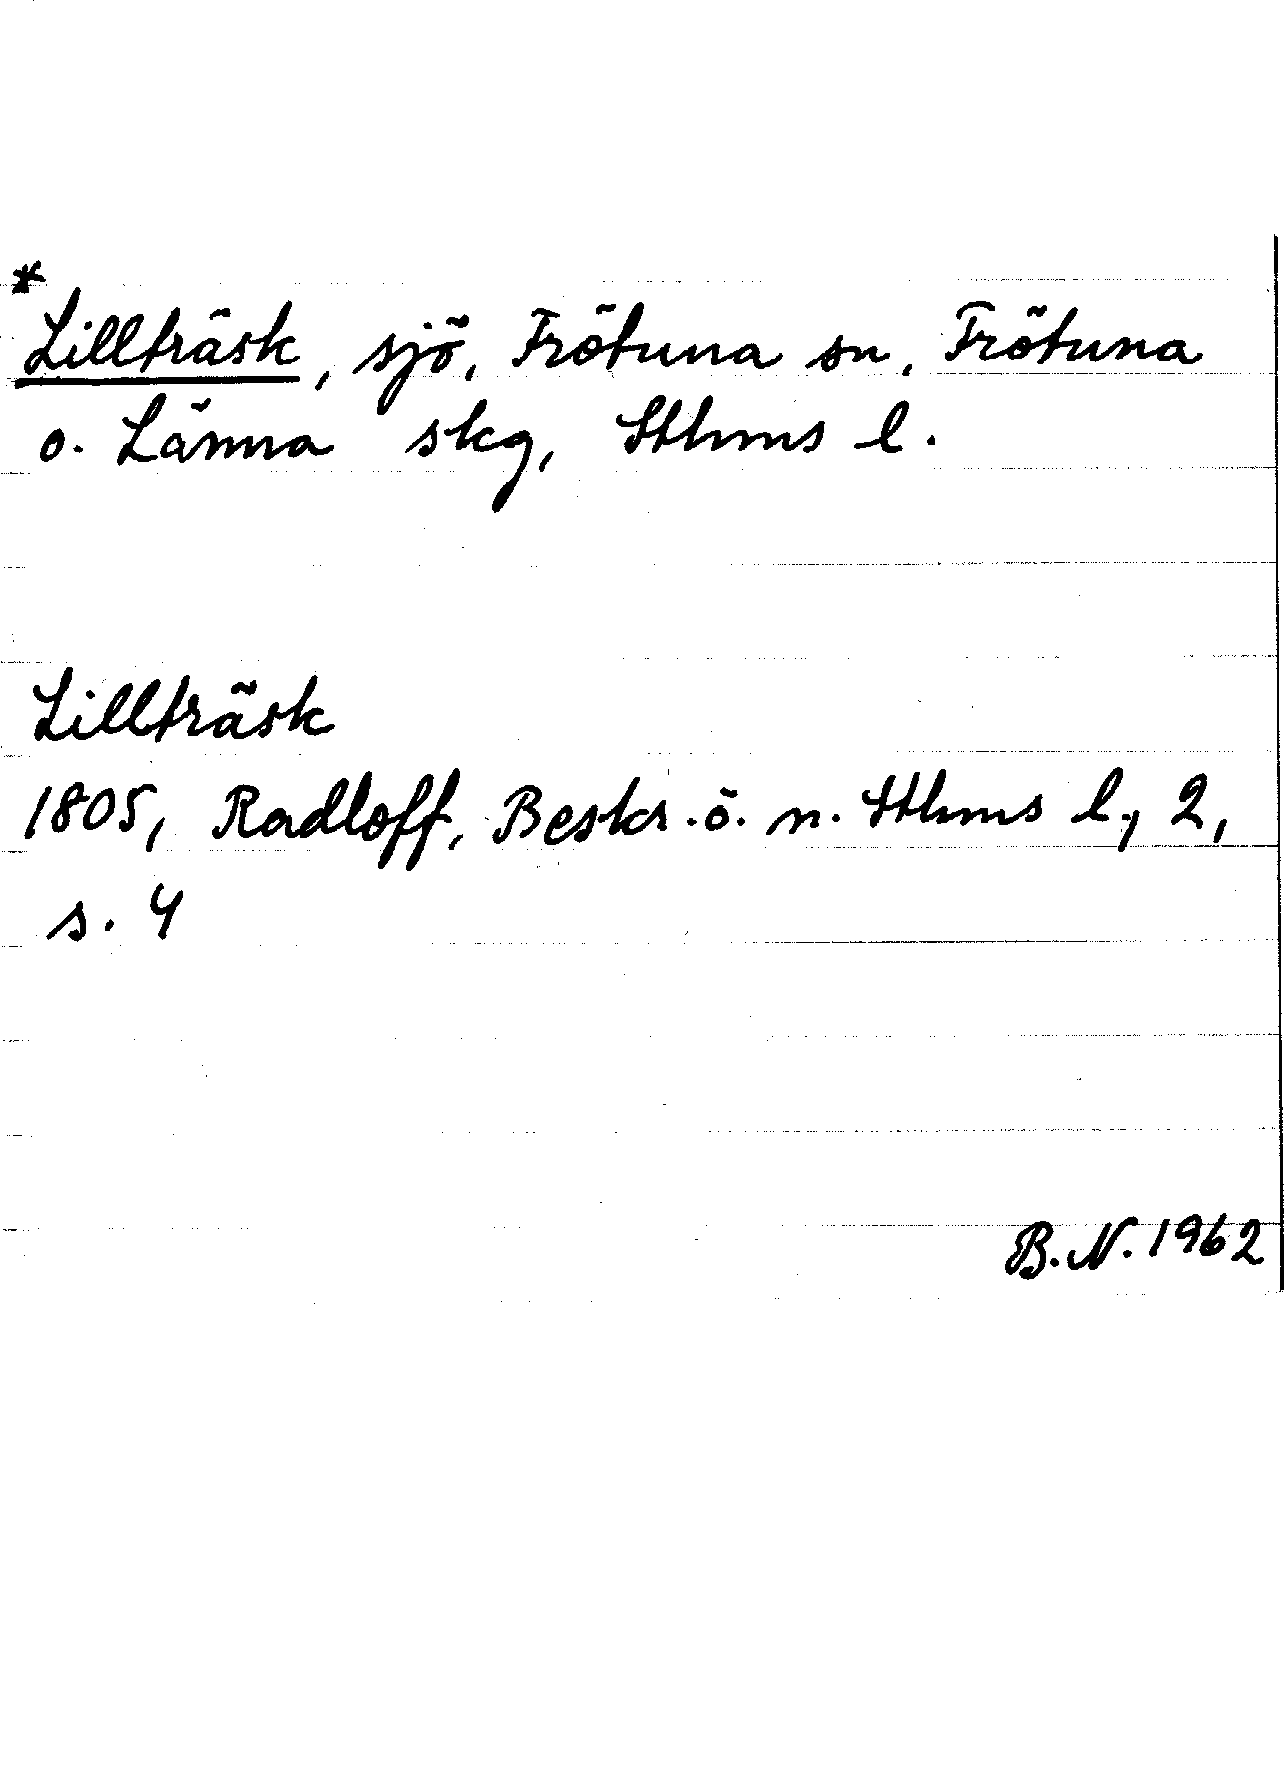 *
Lillträsk, sjö, Frötuna sn, Frötuna
o. Länna skg, Sthms l.
Lillträsk
1805, Radloff, Beskr. ö. n. Sthms l., 2,
s. 4
B.N. 1962